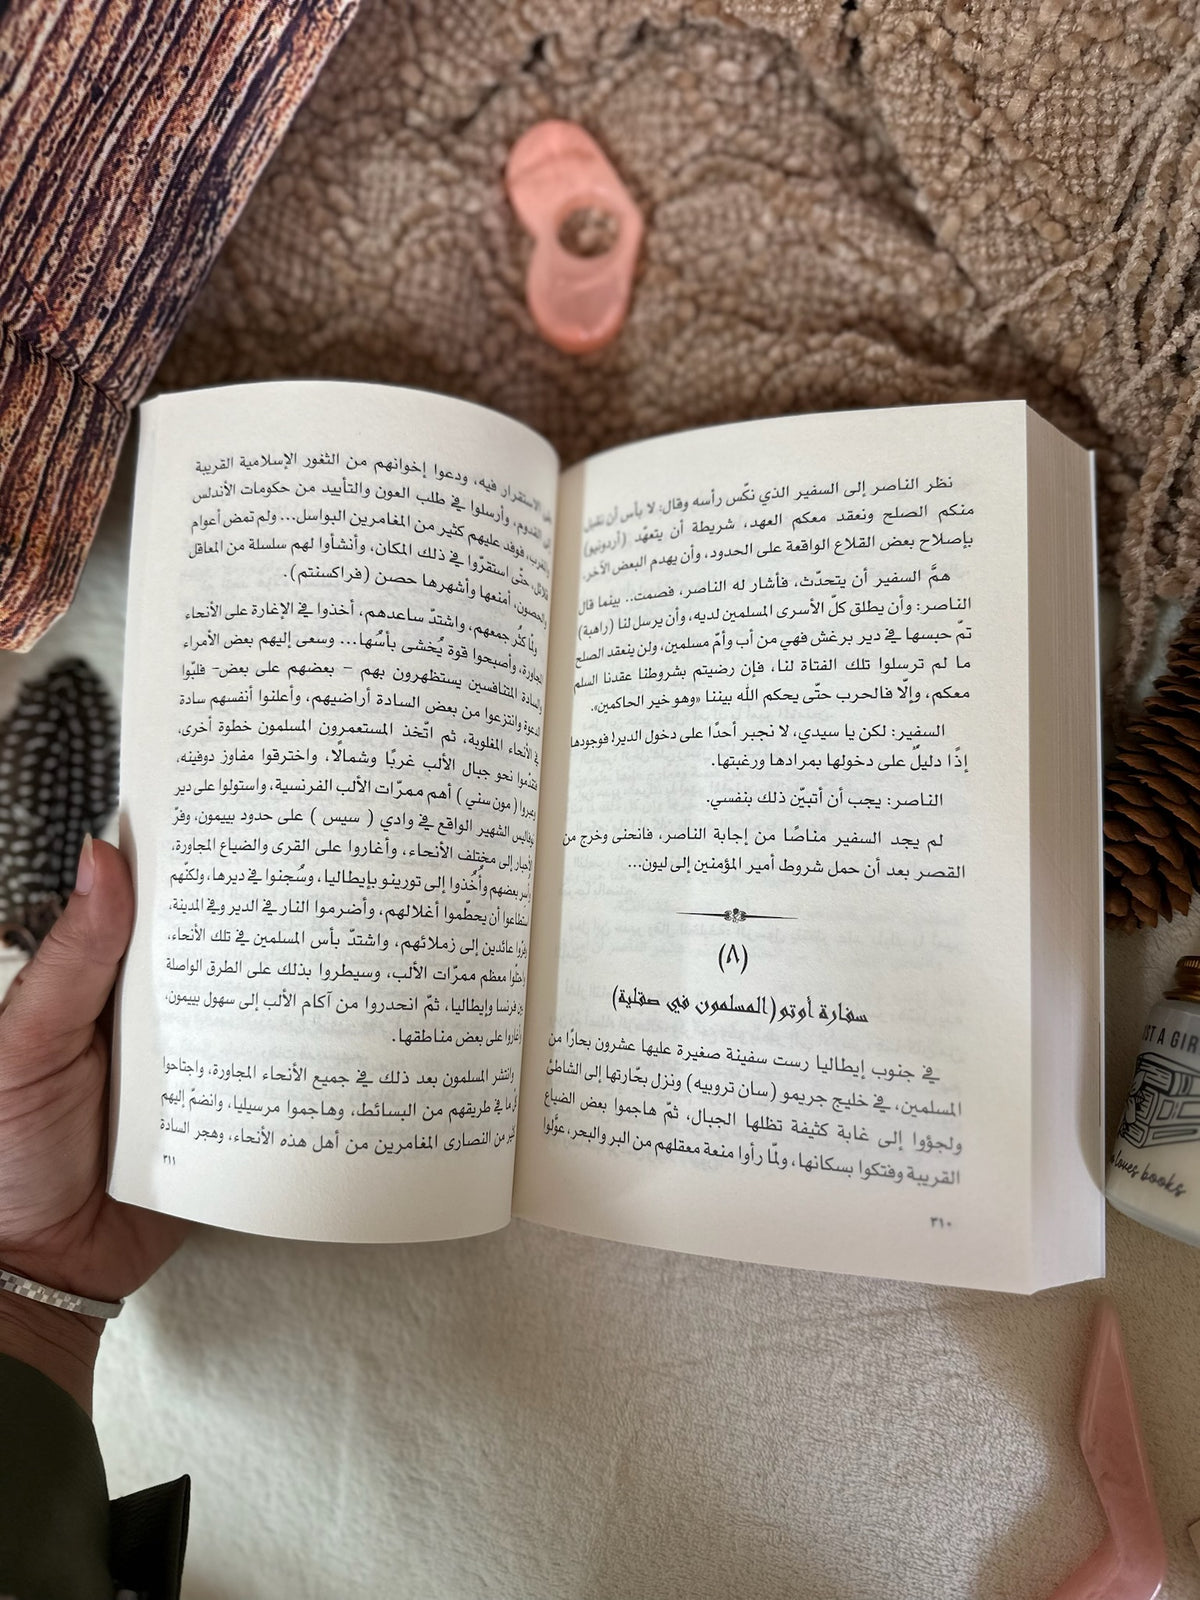 نظر الناصر إلى السفير الذي نكّس رأسه وقال: لا بأس أن نقبل
منكم الصلح ونعقد معكم العهد، شريطة أن يتعهّد (أردونيو)
بإصلاح بعض القلاع الواقعة على الحدود، وأن يهدم البعض الآخر.
همَّ السفير أن يتحدّث، فأشار له الناصر، فصمت.. بينما قال
الناصر: وأن يطلق كلّ الأسرى المسلمين لديه، وأن يرسل لنا (راهبة)
تمّ حبسها في دير برغش فهي من أب وأمّ مسلمين، ولن ينعقد الصلح
ما لم ترسلوا تلك الفتاة لنا، فإن رضيتم بشروطنا عقدنا السلم
معكم، وإلّا فالحرب حتّى يحكم الله بيننا «وهو خير الحاكمين».
السفير: لكن يا سيدي، لا نجبر أحدًا على دخول الدير! فوجودها
إذًا دليلٌ على دخولها بمرادها ورغبتها.
الناصر: يجب أن أتبيّن ذلك بنفسي.
لم يجد السفير مناصًا من إجابة الناصر، فانحنى وخرج من
القصر بعد أن حمل شروط أمير المؤمنين إلى ليون...
(٨)
سفارة أوتو (المسلمون في صقلية)
في جنوب إيطاليا رست سفينة صغيرة عليها عشرون بحارًا من
المسلمين، في خليج جريمو (سان تروبيه) ونزل بحّارتها إلى الشاطئ
ولجؤوا إلى غابة كثيفة تظلها الجبال، ثمّ هاجموا بعض الضياع
القريبة وفتكوا بسكانها، ولمّا رأوا منعة معقلهم من البر والبحر، عوّلوا
٣١٠
الاستقرار فيه، ودعوا إخوانهم من الثغور الإسلامية القريبة
إلى القدوم، وأرسلوا في طلب العون والتأييد من حكومات الأندلس
والمغرب، فوفد عليهم كثير من المغامرين البواسل... ولم تمض أعوام
قلائل، حتّى استقرّوا في ذلك المكان، وأنشأوا لهم سلسلة من المعاقل
والحصون، أمنعها وأشهرها حصن (فراكسنتم).
ولمّا كثُر جمعهم، واشتدّ ساعدهم، أخذوا في الإغارة على الأنحاء
المجاورة، وأصبحوا قوة يُخشى بأسُها... وسعى إليهم بعض الأمراء
والسادة المتنافسين يستظهرون بهم – بعضهم على بعض– فلبّوا
الدعوة وانتزعوا من بعض السادة أراضيهم، وأعلنوا أنفسهم سادة
في الأنحاء المغلوبة، ثم اتّخذ المستعمرون المسلمون خطوة أخرى،
فتقدّموا نحو جبال الألب غربًا وشمالًا، واخترقوا مفاوز دوفينه،
وعبروا (مون سني) أهم ممرّات الألب الفرنسية، واستولوا على دير
نوفاليس الشهير الواقع في وادي (سيس) على حدود بييمون، وفرّ
الأحبار إلى مختلف الأنحاء، وأغاروا على القرى والضياع المجاورة،
وأسر بعضهم وأُخذوا إلى تورينو بإيطاليا، وسُجنوا في ديرها، ولكنّهم
استطاعوا أن يحطّموا أغلالهم، وأضرموا النار في الدير وفي المدينة،
وفرّوا عائدين إلى زملائهم، واشتدّ بأس المسلمين في تلك الأنحاء،
واحتلّوا معظم ممرّات الألب، وسيطروا بذلك على الطرق الواصلة
بين فرنسا وإيطاليا، ثمّ انحدروا من آكام الألب إلى سهول بييمون،
وأغاروا على بعض مناطقها.
وانتشر المسلمون بعد ذلك في جميع الأنحاء المجاورة، واجتاحوا
كل ما في طريقهم من البسائط، وهاجموا مرسيليا، وانضمّ إليهم
كثير من النصارى المغامرين من أهل هذه الأنحاء، وهجر السادة
٣١١
ST A GIR
loves books